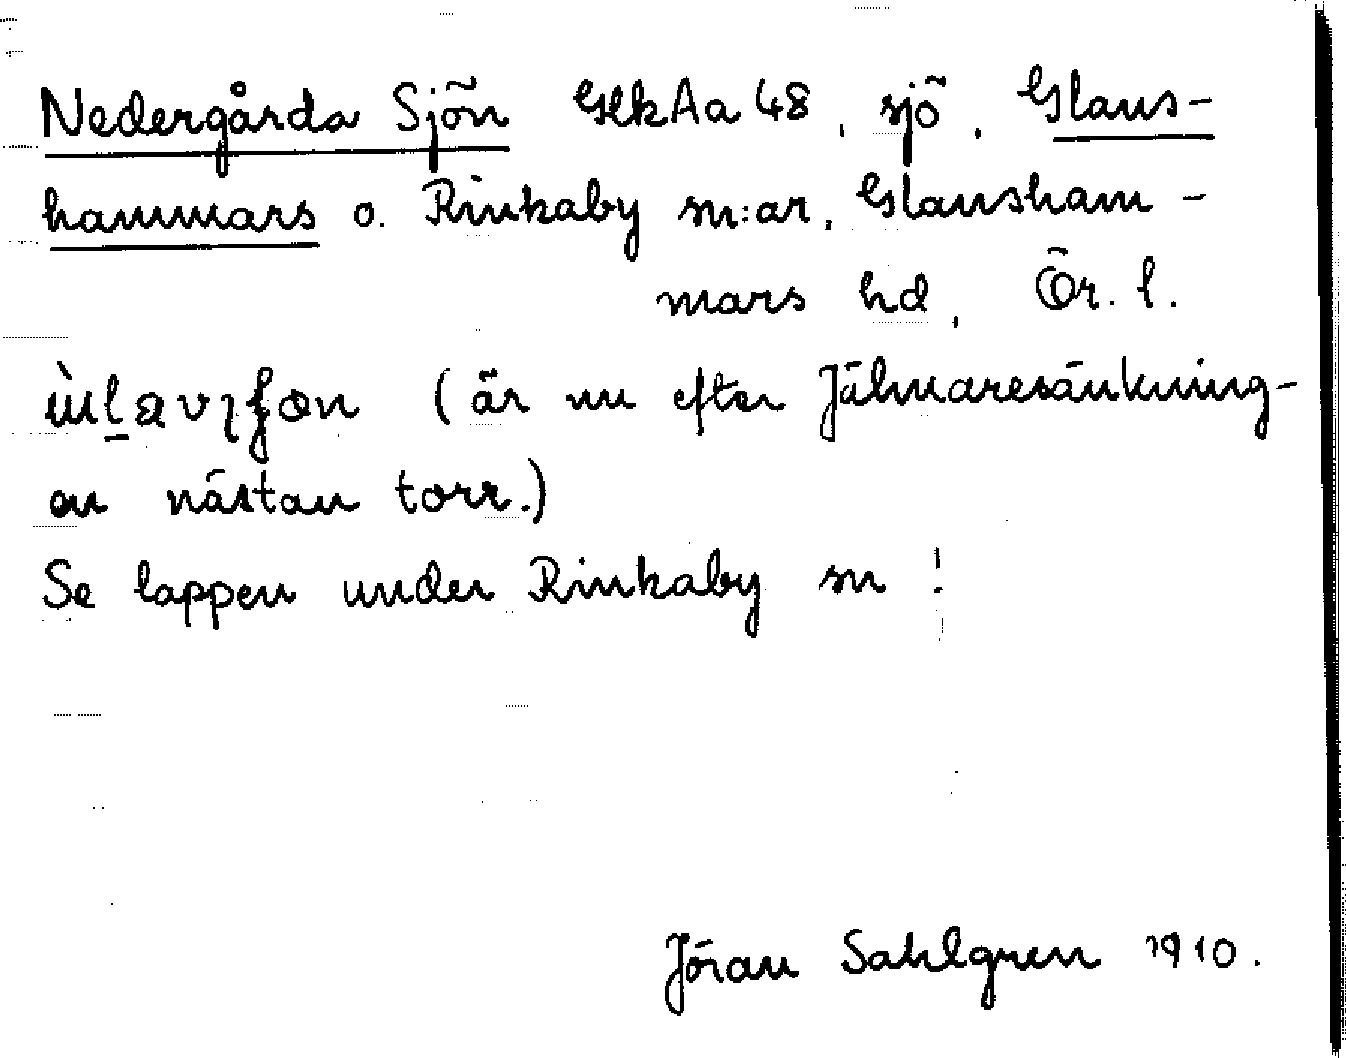 Nedergårda Sjön GekAa 48, sjö, Glans-
hammars o. Rinkaby sn:ar, Glansham-
mars hd, Ör. l.
(är nu efter Jälmaresänkning-
en nästan torr.)
Se lappen under Rinkaby sn!
Jöran Sahlgren 1910.